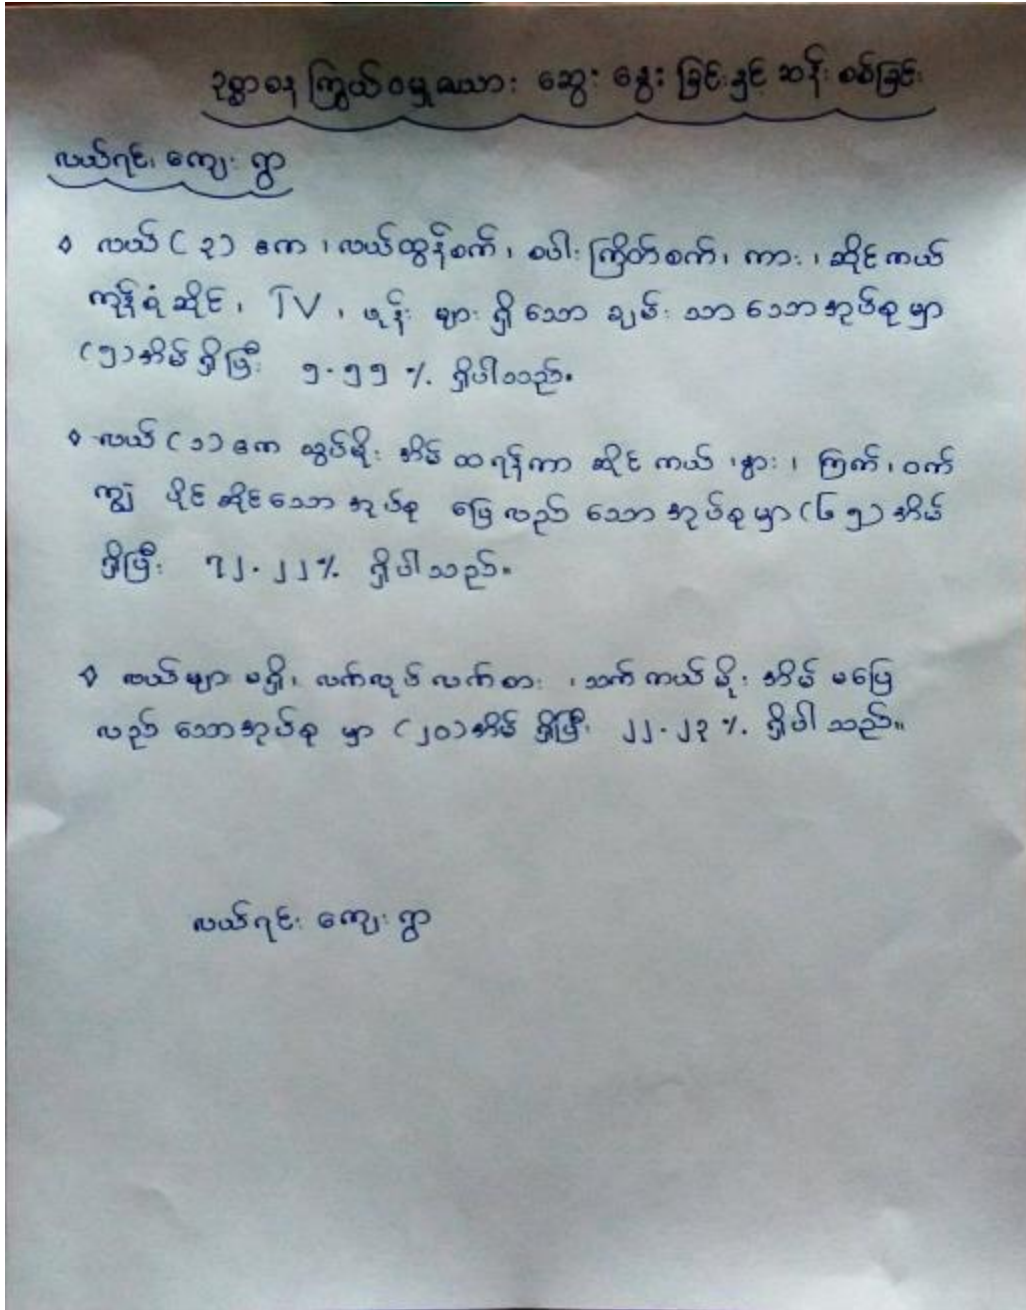 ဥစ္စာဓန ကြွယ်ဝမှုအသား ဆွေး နွေး ခြင်းနှင့် ဆန်း စစ်ခြင်း
လယ်ရင်း ကျေး ရွာ
◊ လယ် ( ၃ ) ဧက ၊ လယ်ထွန်စက် ၊ စပါး ကြိတ်စက် ၊ ကား ၊ ဆိုင်ကယ်
ကုန်စုံဆိုင် ၊ TV ၊ ဖုန်း များ ရှိ သော ချမ်း သာ သော အုပ်စု မှာ
( ၅ ) အိမ် ရှိပြီး ၅.၅၅ % ရှိပါသည်။
◊ လယ် ( ၁ ) ဧက သွပ်မိုး အိမ် ထရန်ကာ ဆိုင် ကယ် ၊ နွား ၊ ကြက် ၊ ဝက်
ကျွဲ ပိုင် ဆိုင် သော အုပ်စု ပြေ လည် သော အုပ်စု မှာ ( ၆၅ ) အိမ်
ရှိပြီး ၇၂.၂၂ % ရှိပါသည်။
◊ လယ်များ မရှိ ၊ လက်လုပ် လက်စား ၊ သက် ကယ် မိုး အိမ် မပြေ
လည် သော အုပ်စု မှာ ( ၂၀ ) အိမ် ရှိပြီး ၂၂.၂၃ % ရှိပါ သည်။
လယ်ရင်း ကျေး ရွာ